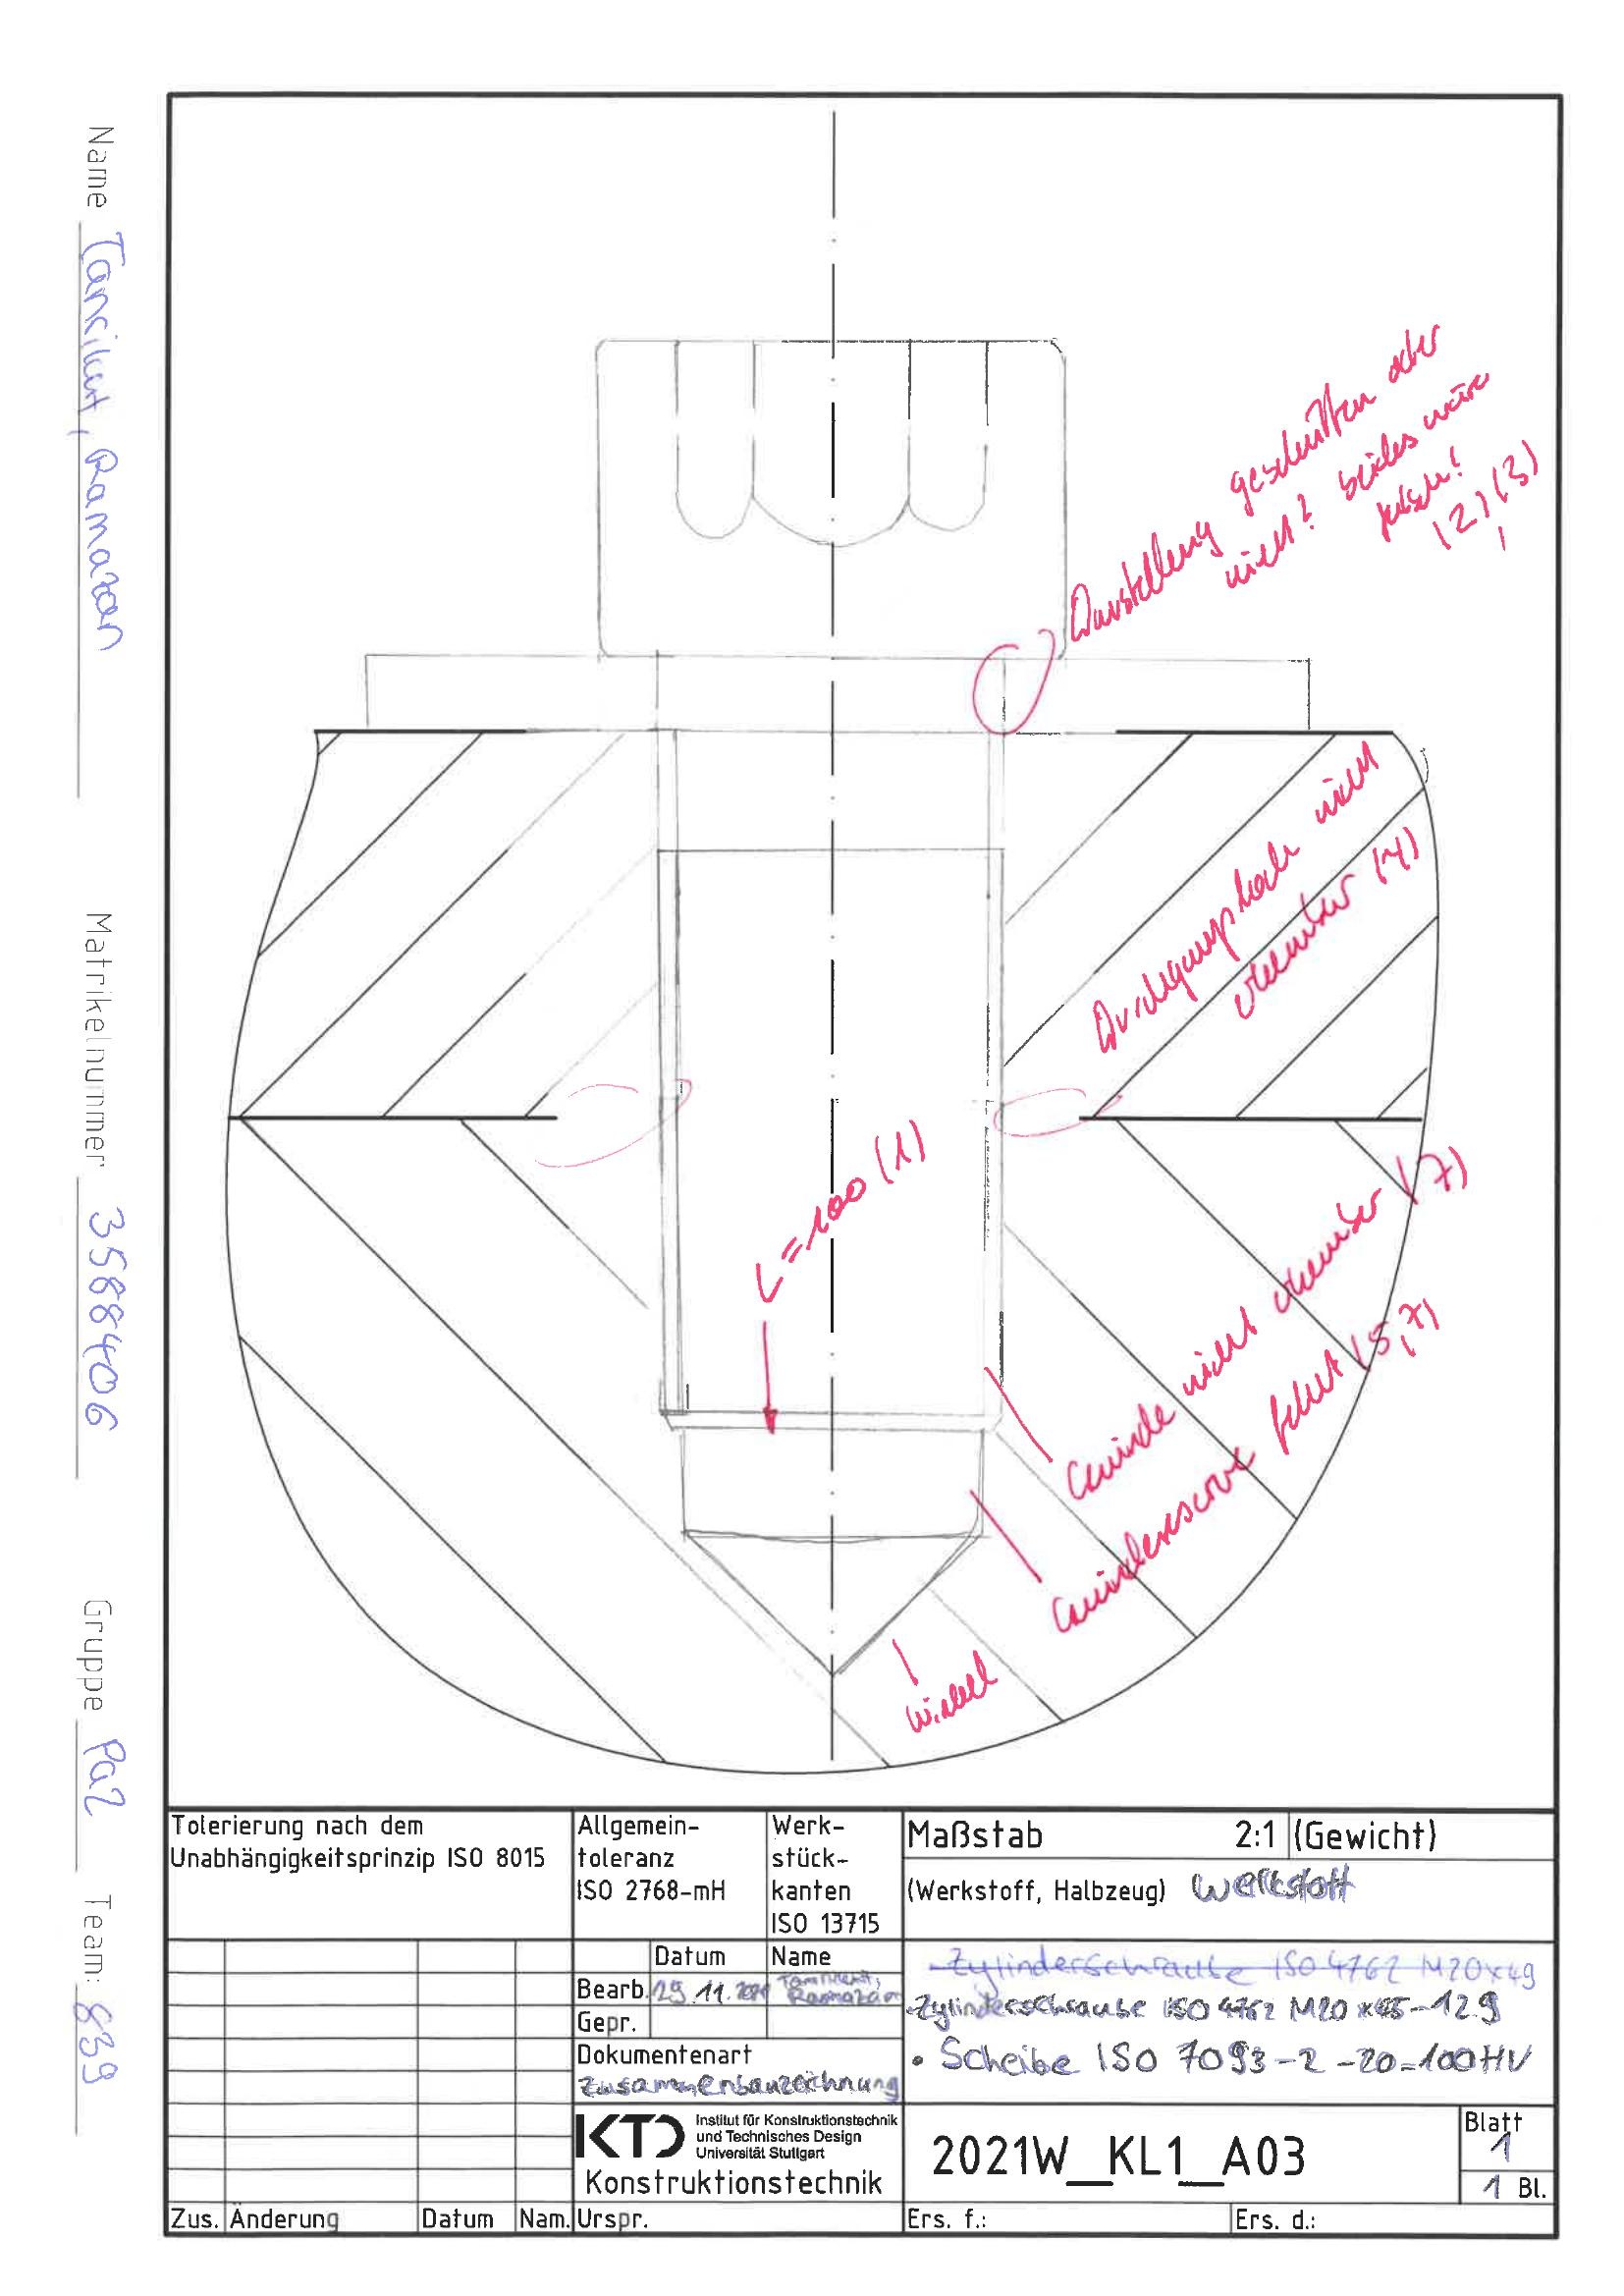 Name Tancikurt, Ramazan
Matrikelnummer 3588406
Gruppe Pa2
Team: 839
Darstellung geschnitten oder
nicht? beides wäre
falsch!
(2)(3)
Durchgangsloch nicht
erkennbar (4)
L=100 (1)
Gewinde nicht erkennbar (7)
Gewindereserve fehlt (5,7)
Winkel
Tolerierung nach dem
Unabhängigkeitsprinzip ISO 8015
Allgemein-
toleranz
ISO 2768-mH
Werk-
stück-
kanten
ISO 13715
Maßstab 2:1 (Gewicht)
(Werkstoff, Halbzeug) Werkstoff
Datum Name
Bearb. 29.11.2021 Ramazan
Gepr.
Zylinderschraube ISO 4762 M20x49
Zylinderschraube ISO 4762 M20x45-12.9
• Scheibe ISO 7093-2-20-100HV
Dokumentenart
Zusammenbauzeichnung
KTD Institut für Konstruktionstechnik
und Technisches Design
Universität Stuttgart
Konstruktionstechnik
2021W_KL1_A03
Blatt
1
1 Bl.
Zus. Änderung Datum Nam. Urspr. Ers. f.: Ers. d.: